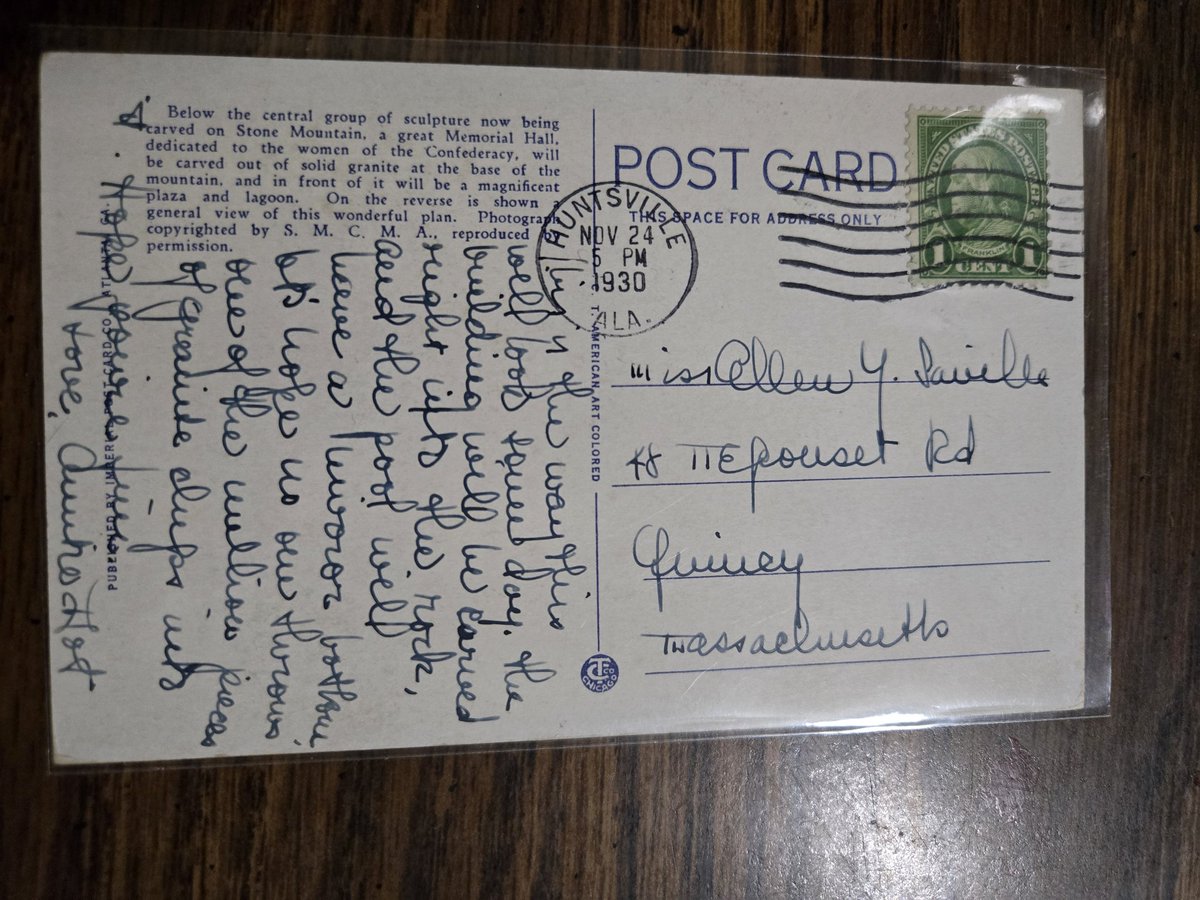 Below the central group of sculpture now being
carved on Stone Mountain, a great Memorial Hall,
dedicated to the women of the Confederacy, will
be carved out of solid granite at the base of the
mountain, and in front of it will be a magnificent
plaza and lagoon. On the reverse is shown a
general view of this wonderful plan. Photograph
copyrighted by S. M. C. M. A., reproduced by
permission.
the way this
will look some day. The
building will be carved
right into the rock,
and the pool will
have a mirror bottom
let's hope no one throws
one of the million pieces
of granite chips into
it. Hope you're
Love, Aunt Dot
POST CARD
THIS SPACE FOR ADDRESS ONLY
HUNTSVILLE
NOV 24
5 PM
1930
ALA.
UNITED STATES POSTAGE
FRANKLIN
1 CENT 1
AMERICAN ART COLORED
CHICAGO
Miss Ellen Y. Saville
48 Neponset Rd
Quincy
Massachusetts